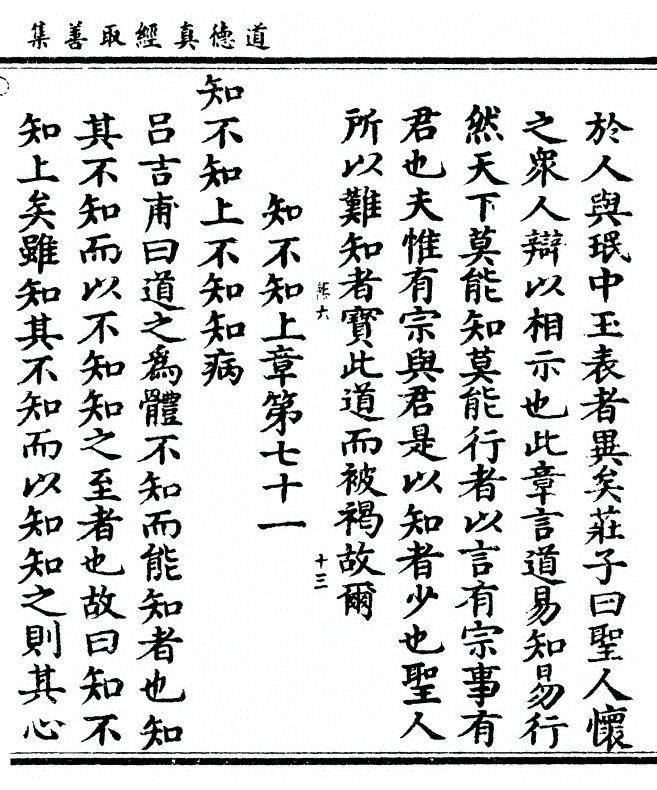 道德真經取善集
於人與珉中玉表者異矣莊子曰聖人懷
之衆人辯以相示也此章言道易知易行
然天下莫能知莫能行者以言有宗事有
君也夫惟有宗與君是以知者少也聖人
所以難知者寶此道而被褐故爾
六
十三
知不知上章第七十一
知不知上不知知病
呂吉甫曰道之爲體不知而能知者也知
其不知而以不知知之至者也故曰知不
知上矣雖知其不知而以知知之則其心